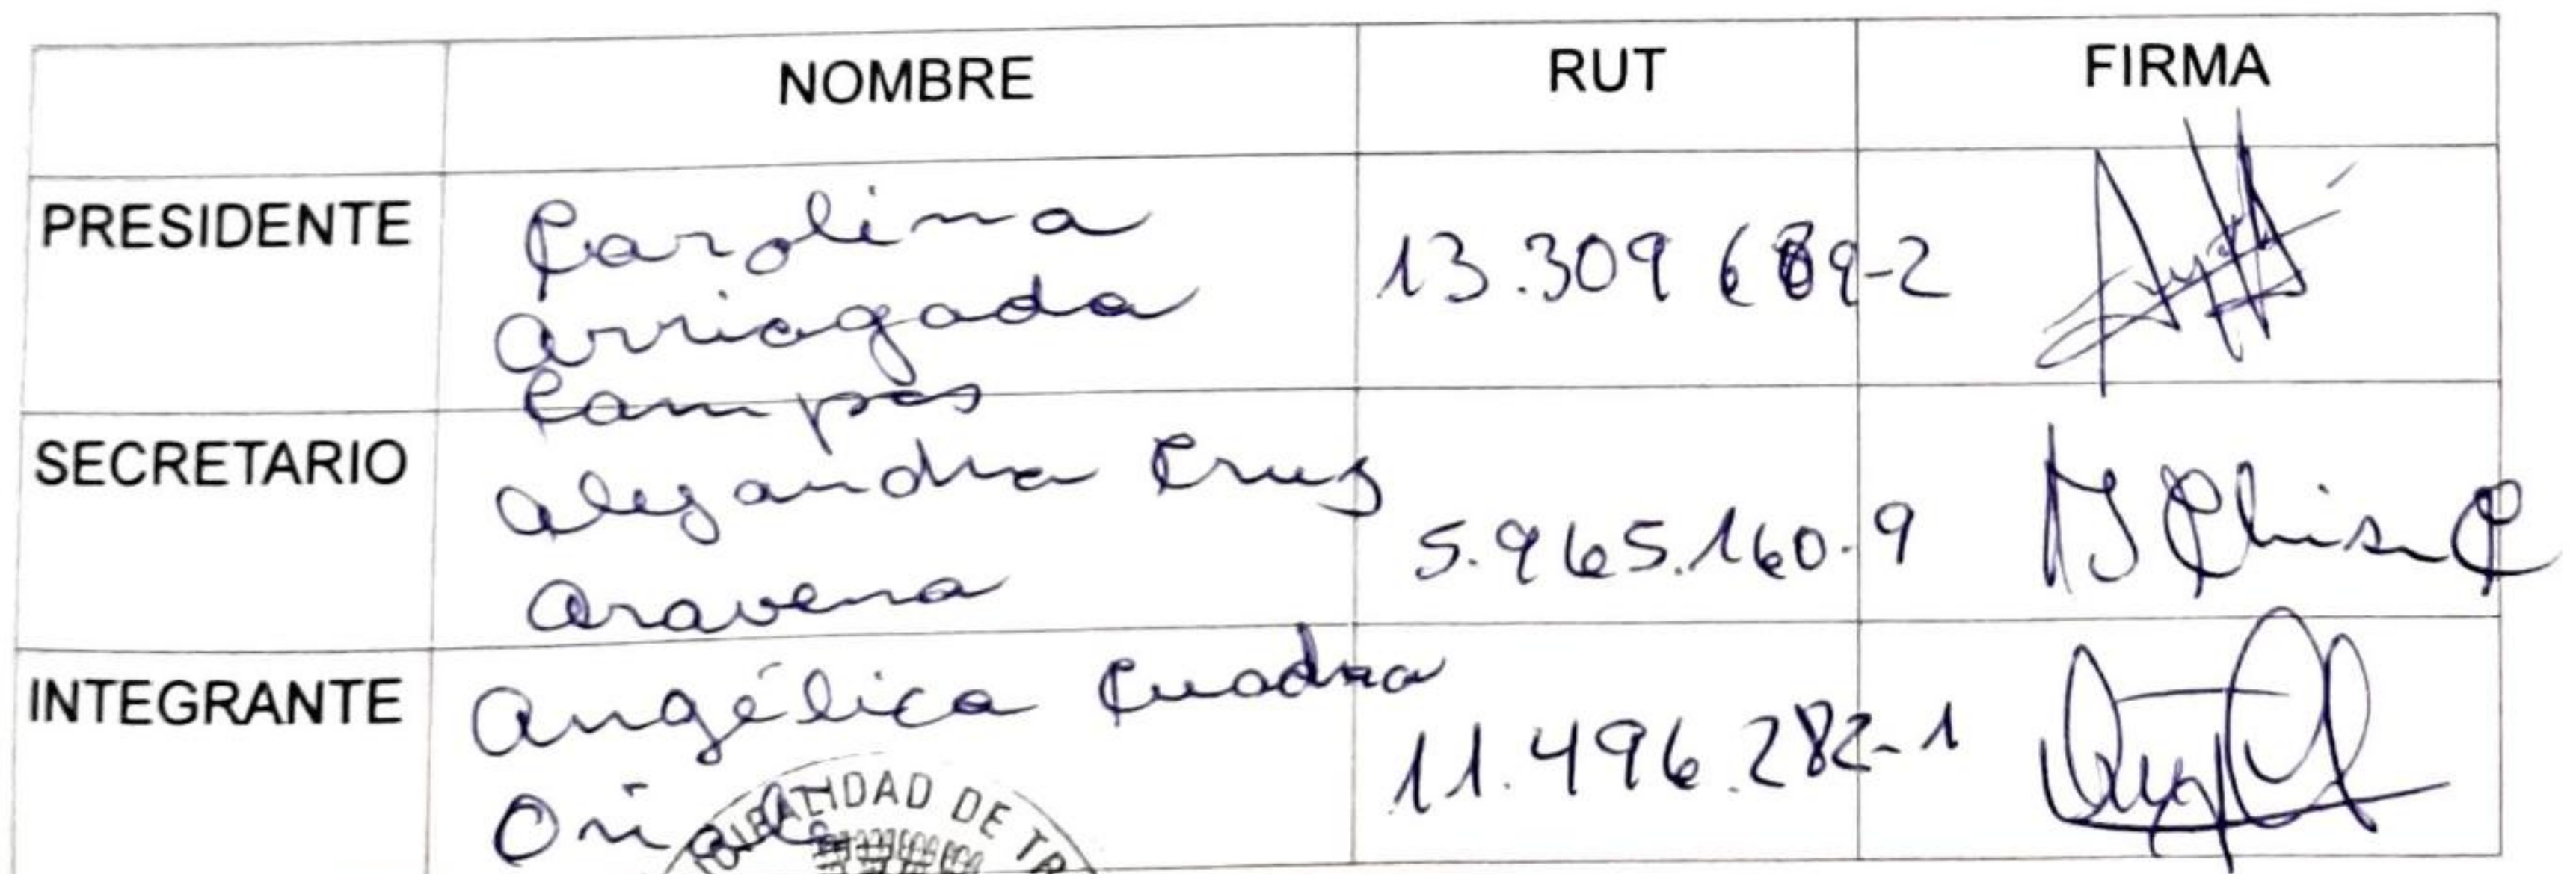 NOMBRE RUT FIRMA
PRESIDENTE Carolina Arriagada Campos 13.309 689-2
SECRETARIO Alejandra Cruz Aravena 5.965.160-9
INTEGRANTE Angélica Cuadra 11.496.282-1
DE